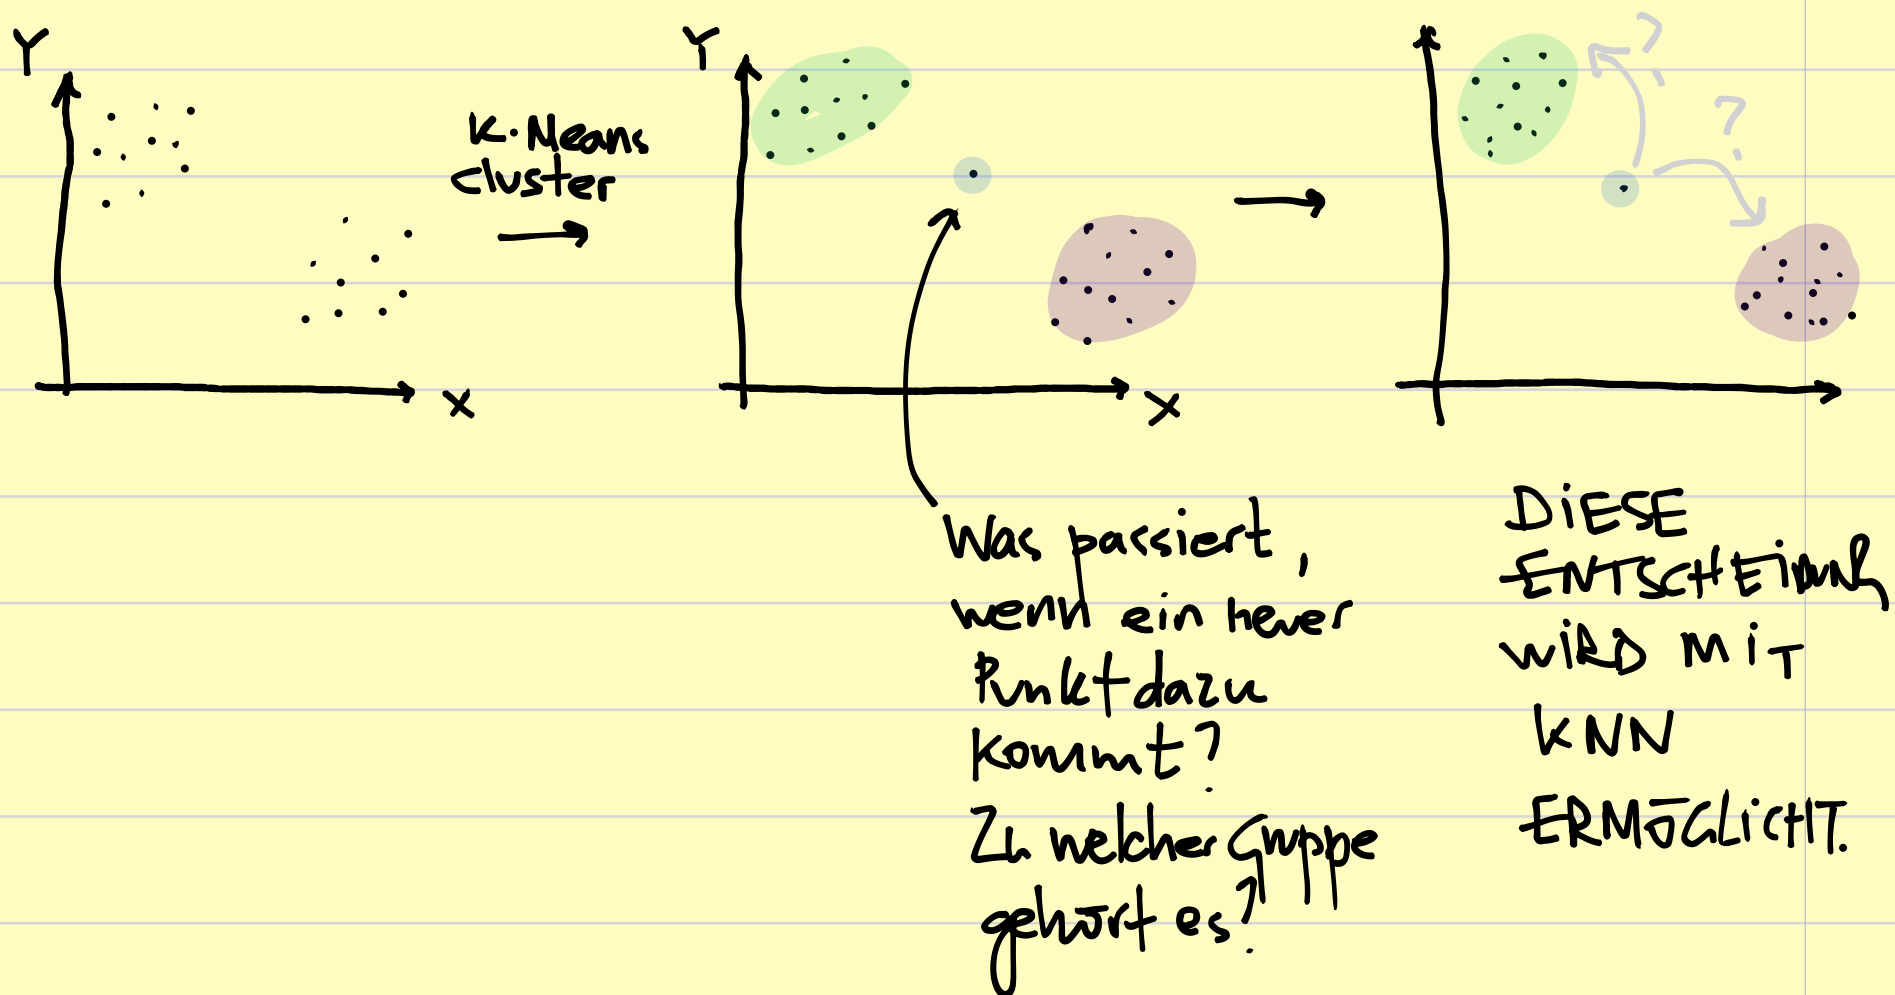 Y
X
K-Means
cluster
Y
X
?
?
Was passiert,
wenn ein neuer
Punkt dazu
kommt?
Zu welcher Gruppe
gehört es?
DIESE
ENTSCHEIDUNG
WIRD MIT
KNN
ERMÖGLICHT.